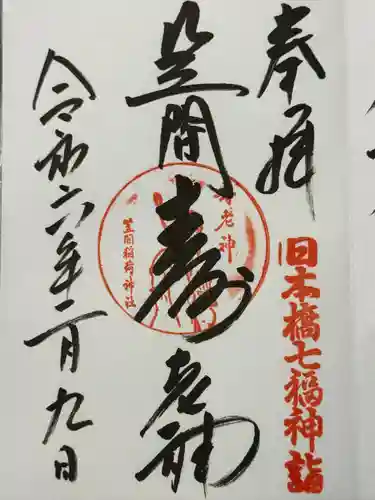 奉拝
旧本橋七福神詣
笠間 寿老神
寿老神
笠間稲荷神社
令和六年二月九日